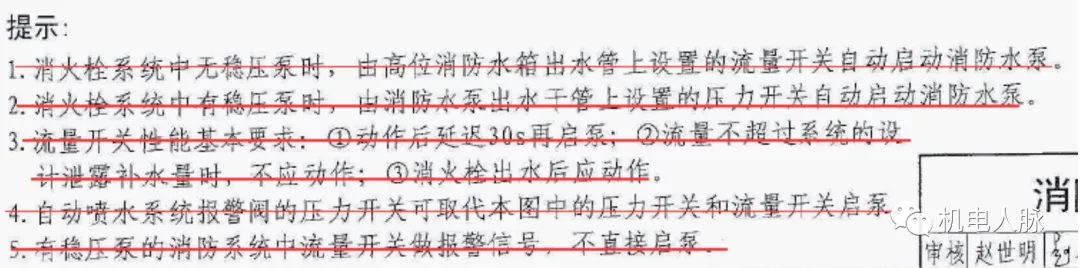 提示：
1. 消火栓系统中无稳压泵时，由高位消防水箱出水管上设置的流量开关自动启动消防水泵。
2. 消火栓系统中有稳压泵时，由消防水泵出水干管上设置的压力开关自动启动消防水泵。
3. 流量开关性能基本要求：①动作后延迟30s再启泵；②流量不超过系统的设
计泄露补水量时，不应动作；③消火栓出水后应动作。
4. 自动喷水系统报警阀的压力开关可取代本图中的压力开关和流量开关启泵
5. 有稳压泵的消防系统中流量开关做报警信号，不直接启泵.
消
机电人脉
审核 赵世明